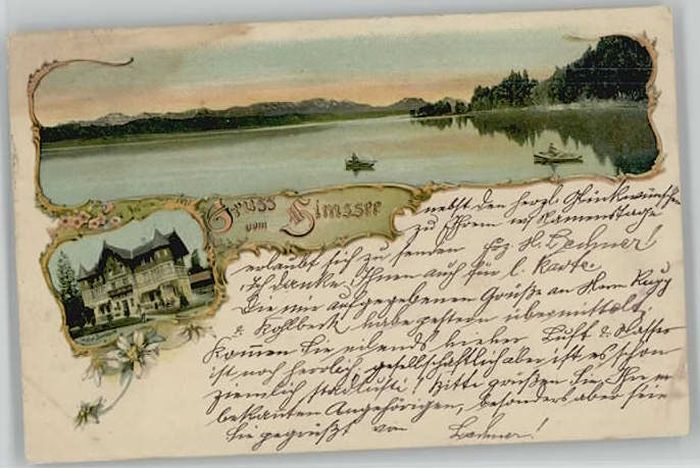 Gruss
vom Simssee
nebst den herzl. Glückwünschen
zu Ihrem Namenstage
erlaubt sich zu senden H. Lechner!
Ich danke Ihnen auch für l. Karte.
Die mir aufgegebenen Grüße an Herrn Rupp
& Kohlbeck habe gestern übermittelt.
Kommen Sie eilends hieher Luft & Wasser
ist noch herrlich, gesellschaftlich aber ist es schon
ziemlich stad! Bitte grüßen Sie Ihre
bekannten Angehörigen, besonders aber seien
Sie gegrüßt von Lechner!